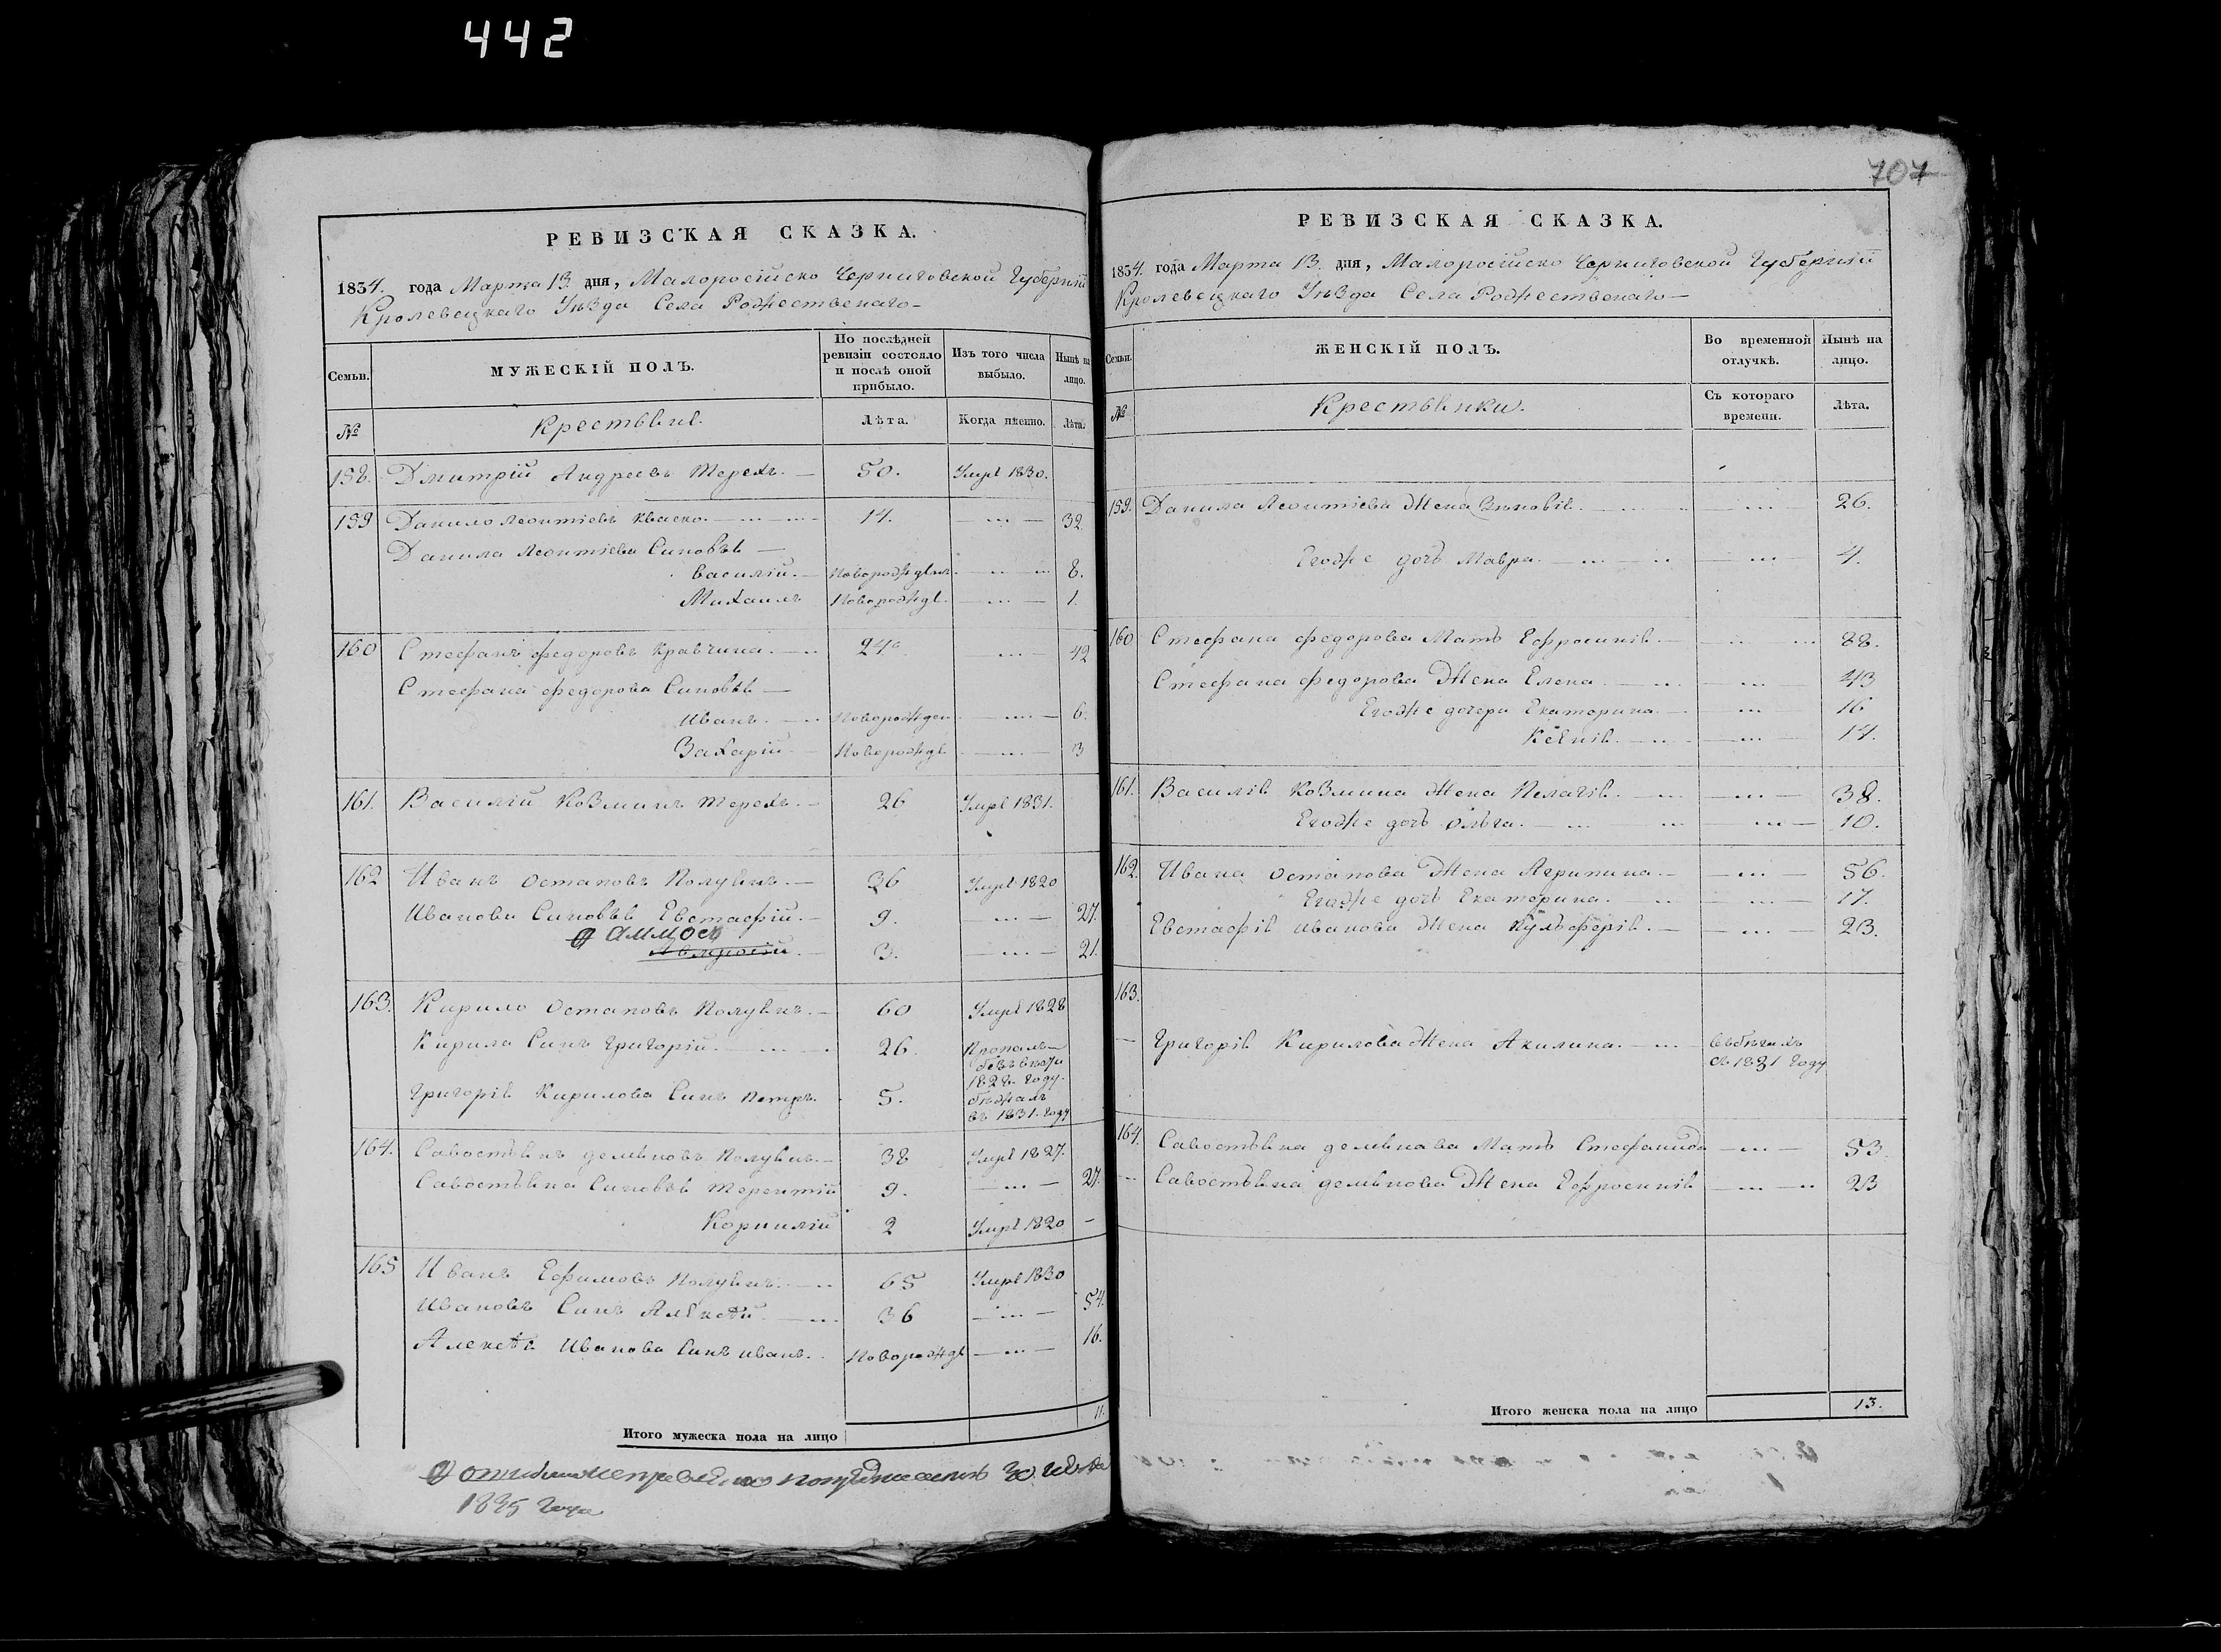 442
РЕВИЗСКАЯ СКАЗКА.
1834. года Марта 13. дня, Малоросійско Черниговской Губерніи
Кролевецкаго Уѣзда Села Рождественаго
Семьи.
МУЖЕСКІЙ ПОЛЪ.
По послѣдней ревизіи состояло и послѣ оной прибыло.
Изъ того числа выбыло.
Нынѣ на лицо.
№
Крестьяне.
Лѣта.
Когда именно.
Лѣта.
158. Дмитрій Андреевъ Терехъ. 50. Умре 1830.
159 Данило Леонтіевъ Кваско. 14. 32.
Данила Леонтіева Синовья
Василій. Новорожден. 8.
Михаилъ Новорожде. 1.
160 Стефанъ Федоровъ Кравчина. 24 42
Стефана Федорова Синовья
Иванъ. Новорожден. 6.
Захарій Новорожде 3
161. Василій Козминъ Терехъ. 26 Умре 1831.
162 Иванъ Остаповъ Полуянъ. 36 Умре 1820
Иванови Синовья Евстафій. 9. 27.
Аммосъ
Амвросій. 3. 21.
163. Кирило Остаповъ Полуянъ. 60 Умре 1828
Кирила Синъ Григорій. 26. Пропалъ
безъ вѣсти
1828. году.
Григорія Кирилова Синъ Петръ. 5. бѣжалъ
въ 1831. году
164. Савостьянъ Демяновъ Полуянъ. 38 Умре 1827.
Савостьяна Синовья Терентій 9. 27.
Корнилій 2 Умре 1820
165 Иванъ Ефимовъ Полуянъ. 65 Умре 1830
Ивановъ Синъ Алексѣй. 36 54.
Алексѣя Иванова Синъ Иванъ. Новорожде 16.
Итого мужеска пола на лицо 11.
1835 года
707
РЕВИЗСКАЯ СКАЗКА.
1834. года Марта 13. дня, Малоросійско Черниговской Губерніи
Кролевецкаго Уѣзда Села Рождественаго
Семьи.
ЖЕНСКІЙ ПОЛЪ.
Во временной отлучкѣ.
Нынѣ на лицо.
№
Крестьянки.
Съ котораго времени.
Лѣта.
159. Данила Леонтіева Жена Зѣновія. 26.
Егоже дочъ Мавра. 4.
160 Стефана Федорова Мать Ефросинія. 88.
Стефана Федорова Жена Елена 43
Егоже дочери Екатерина. 16
Ксенія. 14.
161. Василія Козмина Жена Пелагія. 38.
Егоже дочь Ольга. 10.
162. Ивана Остапова Жена Агрипина. 56.
Егоже дочь Екатерина. 17.
Евстафія Иванова Жена Гликерія. 23.
163.
Григорія Кирилова Жена Акилина. въ бѣгахъ
съ 1831 году
164. Савостьяна Демянова Мать Стефанида 53
Савостьяна Демянова Жена Ефросинія 23
Итого женска пола на лицо 13.